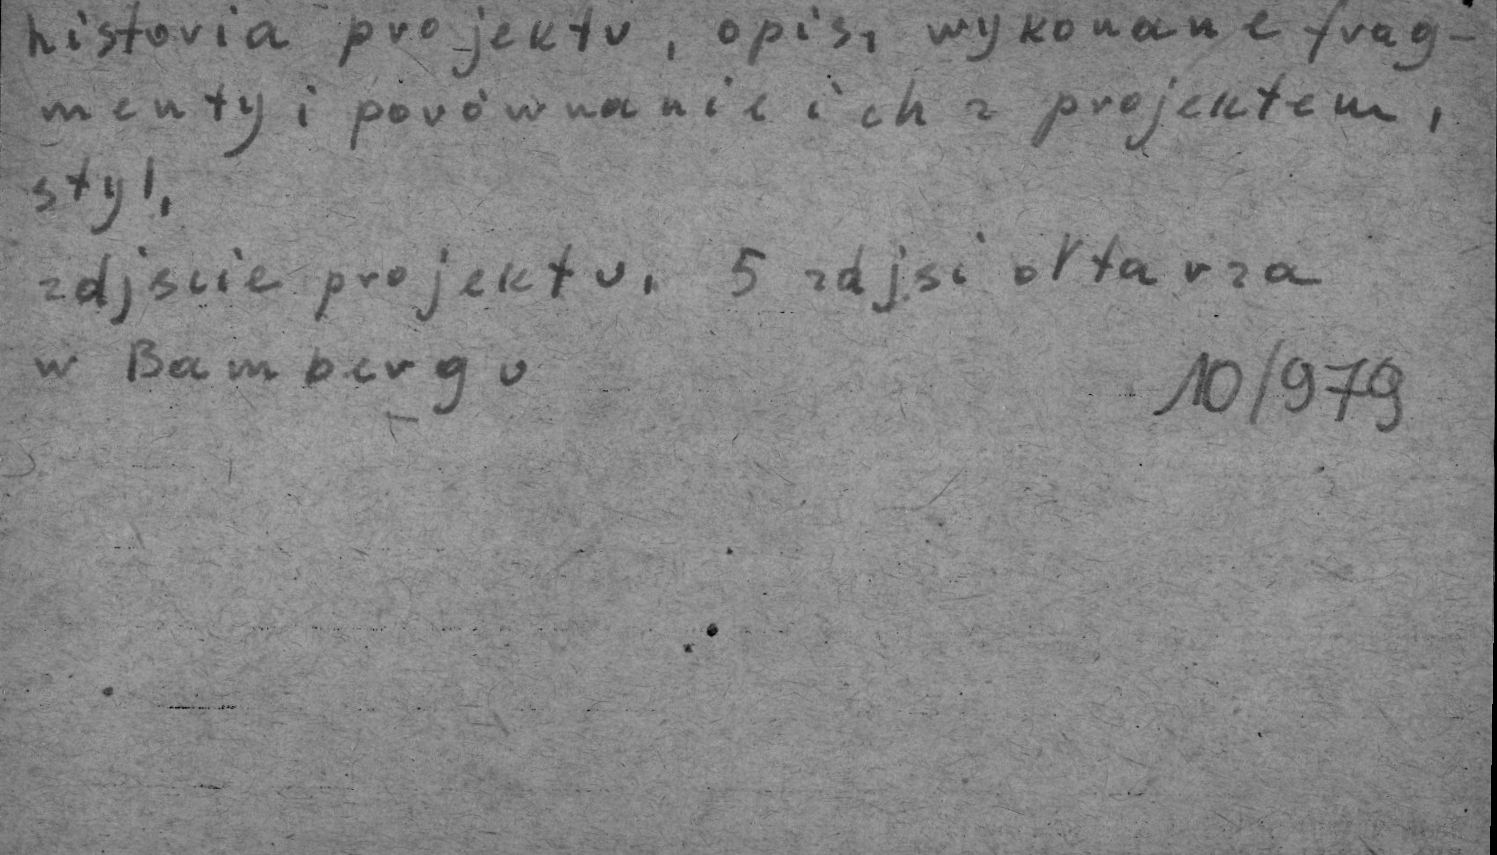 historia projektu, opis, wykonane frag-
menty i porównanie ich z projektem,
styl,
zdjscie projektu, 5 zdjsi ołtarza
w Bambergu 10/979